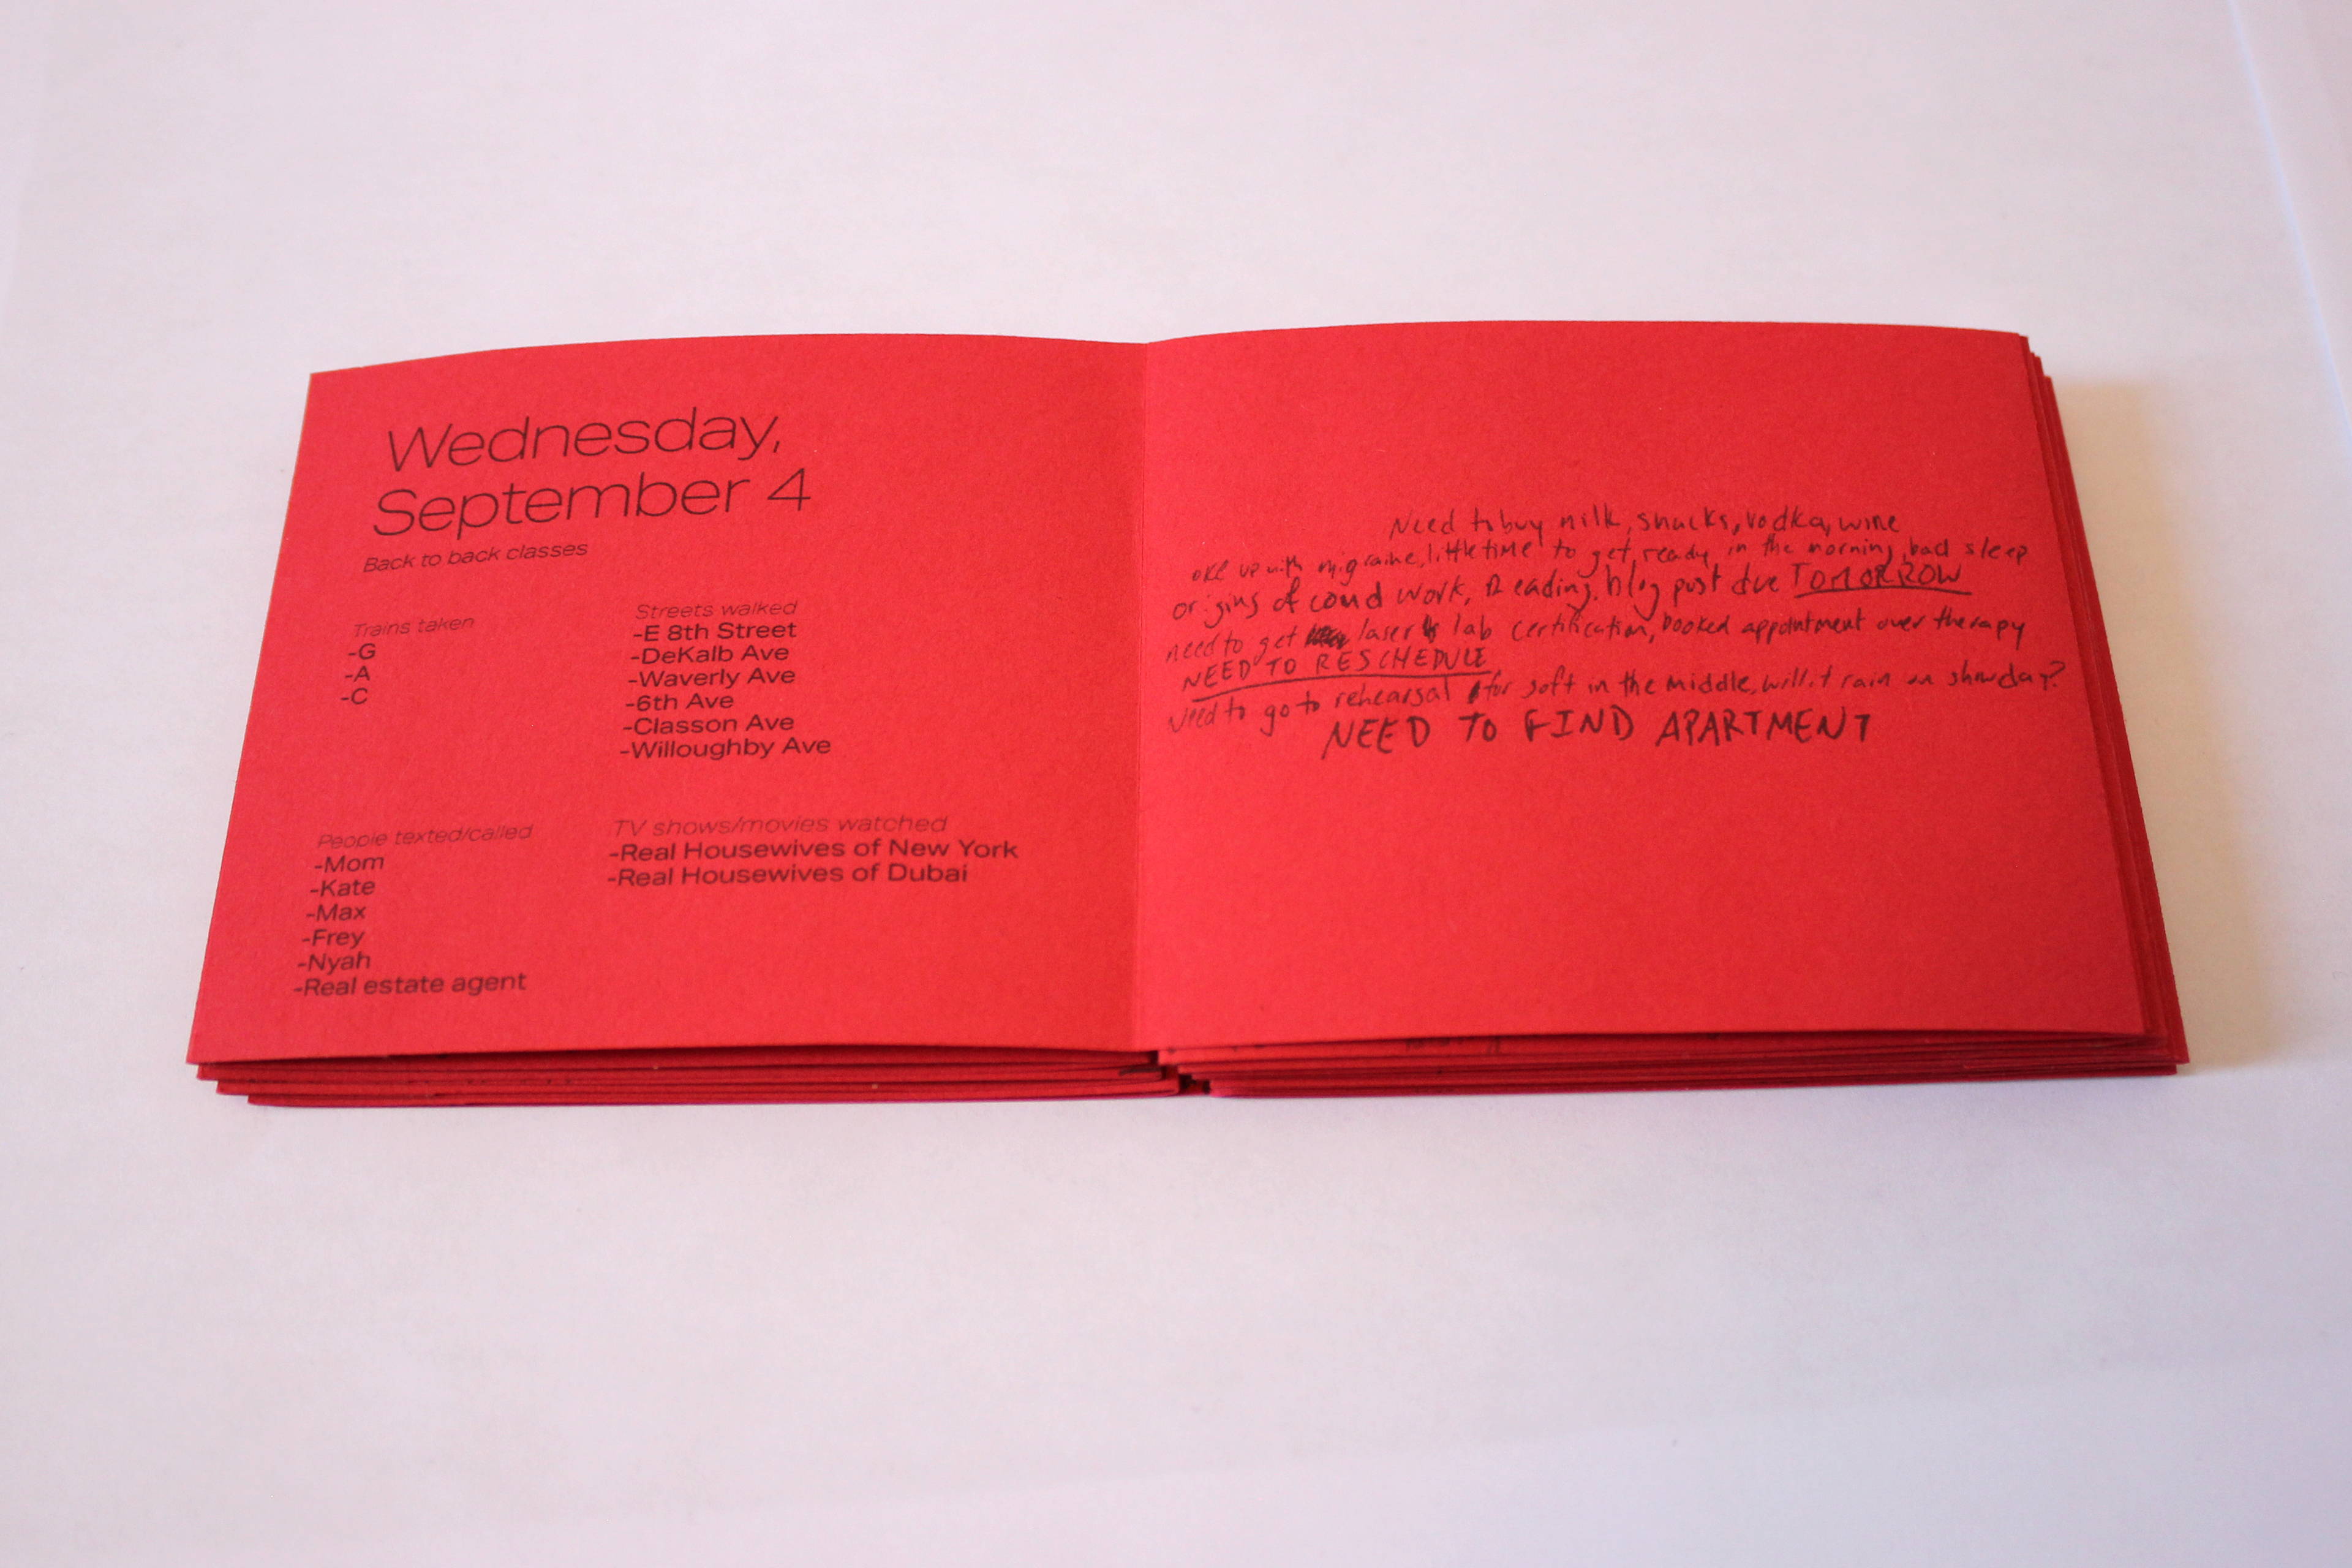 Wednesday,
September 4
Back to back classes
Trains taken
-G
-A
-C
Streets walked
-E 8th Street
-DeKalb Ave
-Waverly Ave
-6th Ave
-Classon Ave
-Willoughby Ave
People texted/called
-Mom
-Kate
-Max
-Frey
-Nyah
-Real estate agent
TV shows/movies watched
-Real Housewives of New York
-Real Housewives of Dubai
Need to buy milk, snacks, vodka, wine
oke up with migraine, little time to get ready in the morning, bad sleep
origins of work, Reading, blog post due TOMORROW
need to get laser lab certification, booked appointment over therapy
NEED TO RESCHEDULE
Need to go to rehearsal for soft in the middle, will it rain on show day?
NEED TO FIND APARTMENT